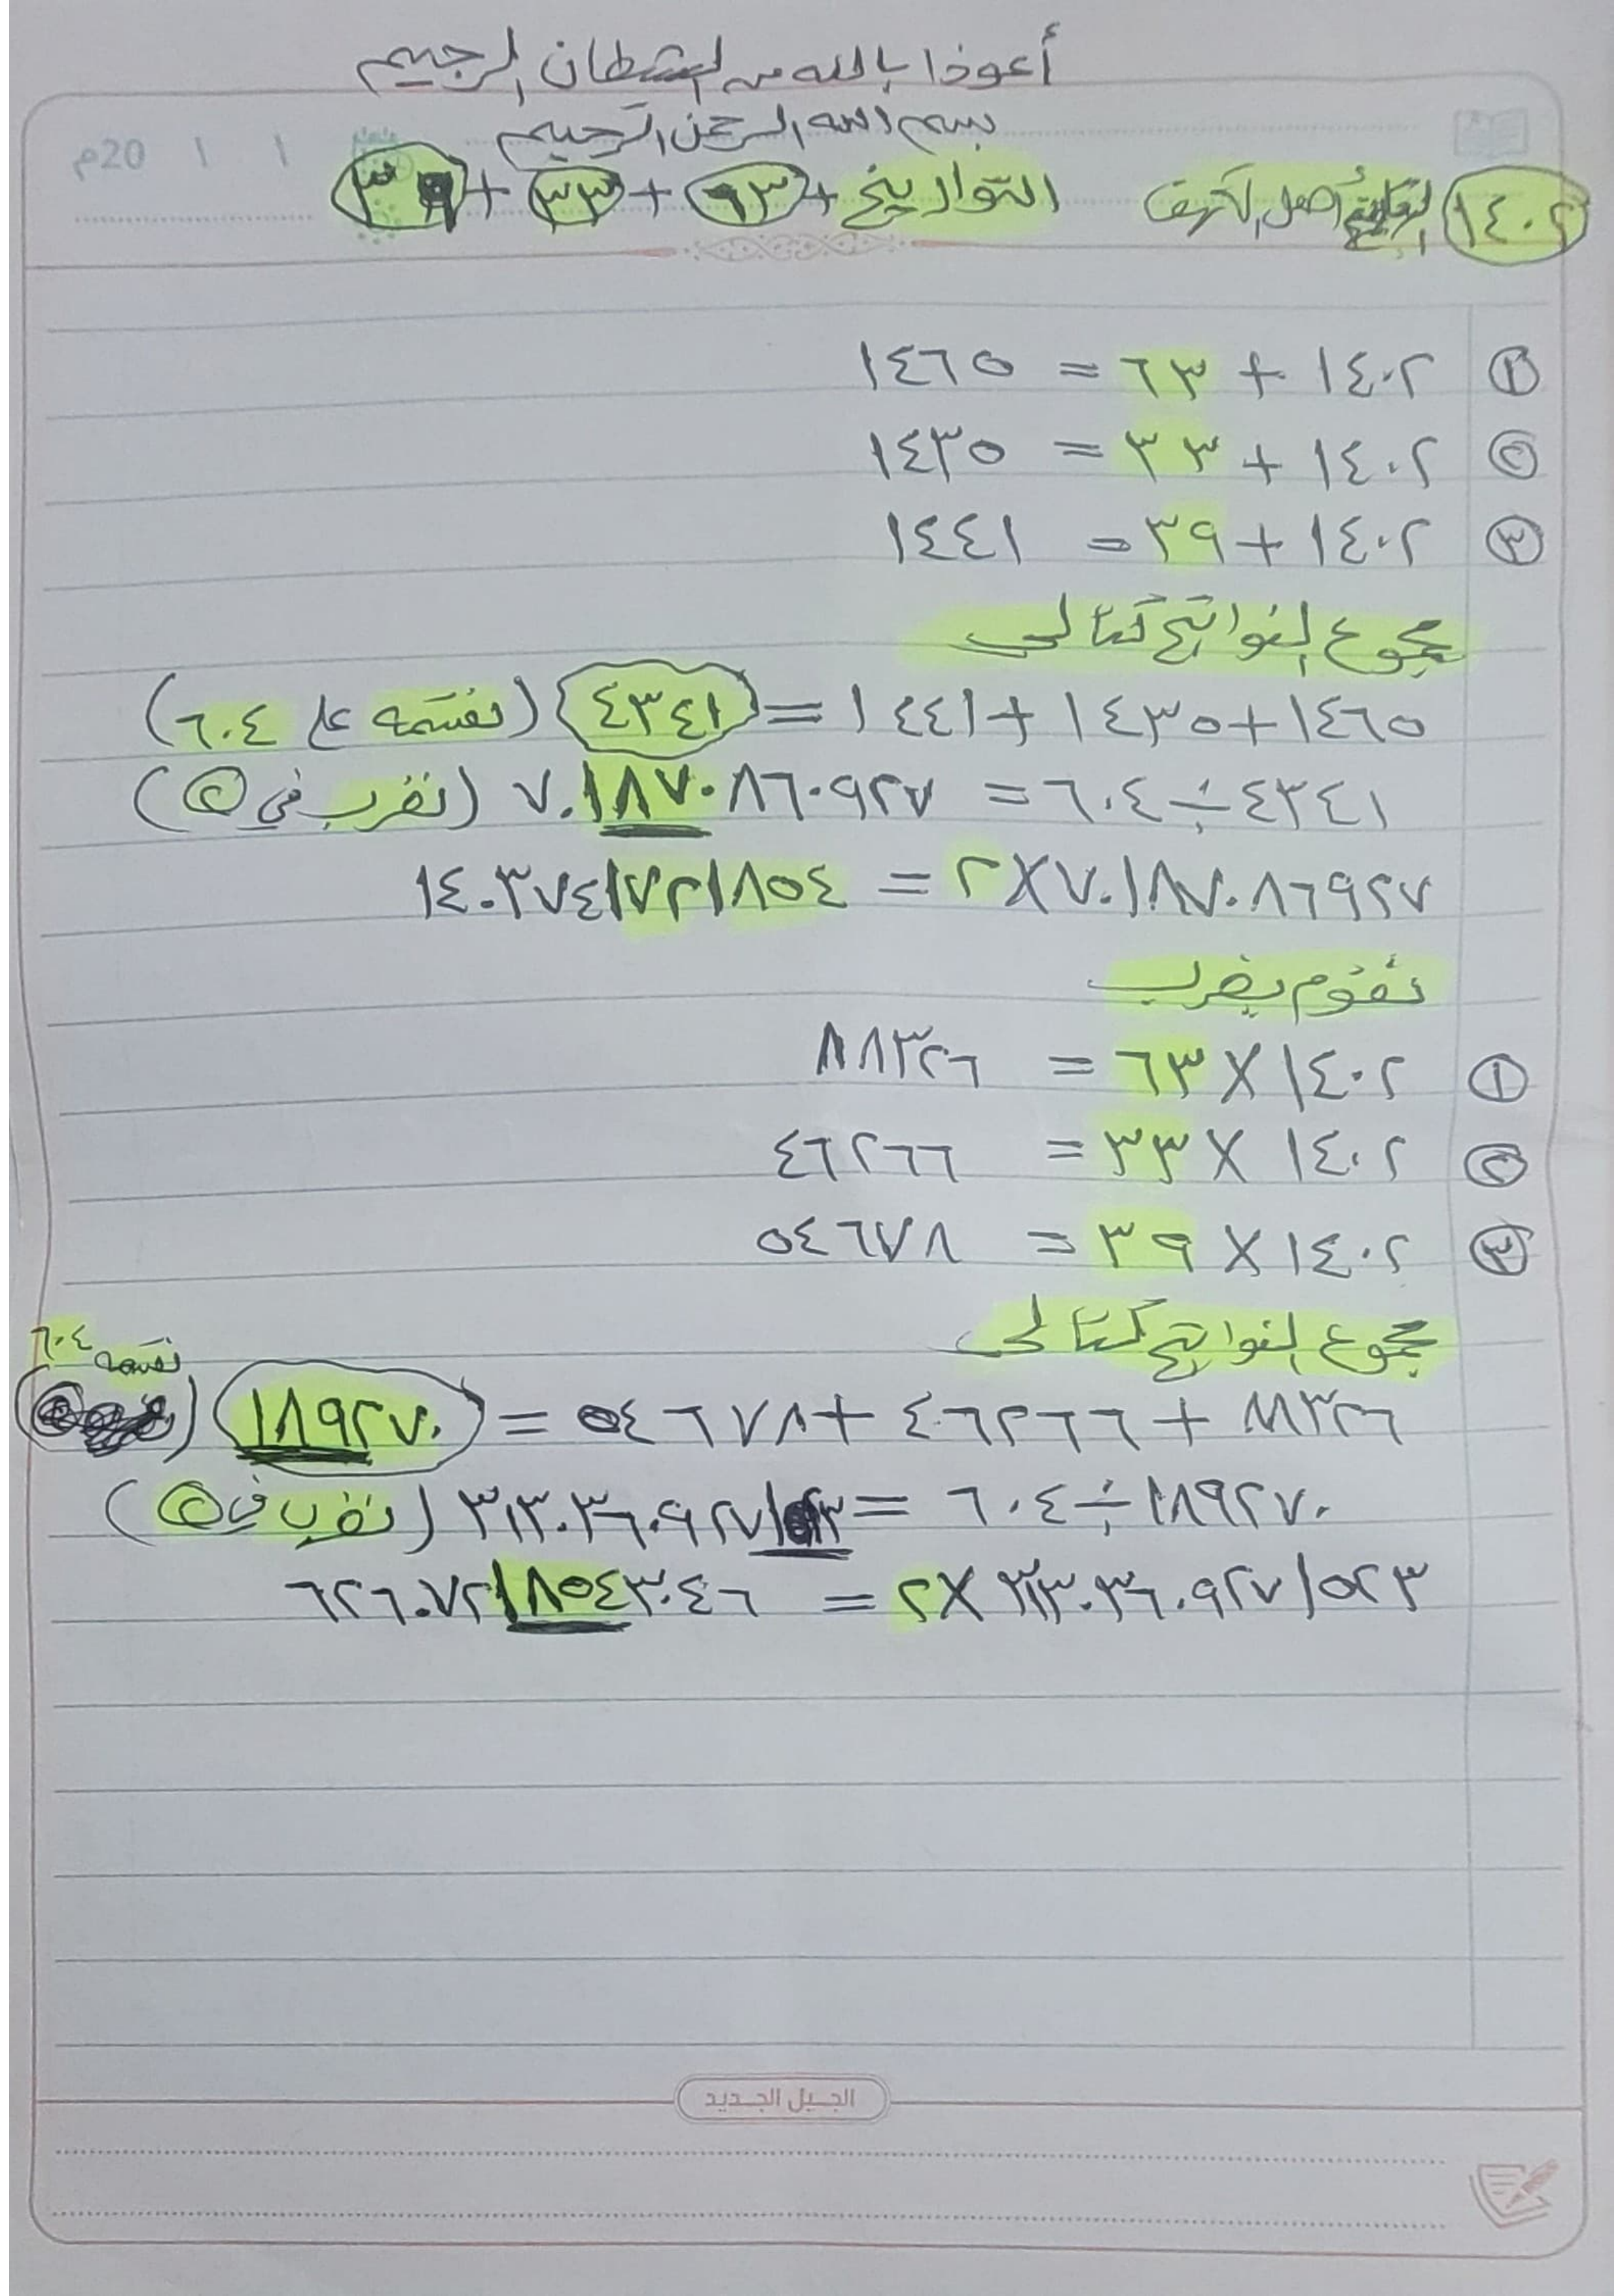 أعوذا بالله من الشطان الرجيم
بسم الله الرحمن الرحيم
20م / /
١٤٠٢ أصل الكهف التواريخ + ٦٣ + ٣٣ + ٣٩
① ١٤٠٢ + ٦٣ = ١٤٦٥
② ١٤٠٢ + ٣٣ = ١٤٣٥
③ ١٤٠٢ + ٣٩ = ١٤٤١
مجموع النواتج كتالي
١٤٦٥ + ١٤٣٥ + ١٤٤١ = ٤٣٤١ (نقسمه على ٦٠٤)
٤٣٤١ ÷ ٦٠٤ = ٧.١٨٧٠٨٦٠٩٢٧ (نضرب في ②)
٧.١٨٧٠٨٦٩٢٧ × ٢ = ١٤.٣٧٤١٧٢١٨٥٤
نقوم بضرب
① ١٤٠٢ × ٦٣ = ٨٨٣٢٦
② ١٤٠٢ × ٣٣ = ٤٦٢٦٦
③ ١٤٠٢ × ٣٩ = ٥٤٦٧٨
مجموع النواتج كتالي
٨٨٣٢٦ + ٤٦٢٦٦ + ٥٤٦٧٨ = ١٨٩٢٧٠ نقسمه ٦٠٤
١٨٩٢٧٠ ÷ ٦٠٤ = ٣١٣.٣٦٠٩٢٧١٥٢٣ (نضرب في ②)
٣١٣.٣٦٠٩٢٧١٥٢٣ × ٢ = ٦٢٦.٧٢١٨٥٤٣٠٤٦
الجيل الجديد